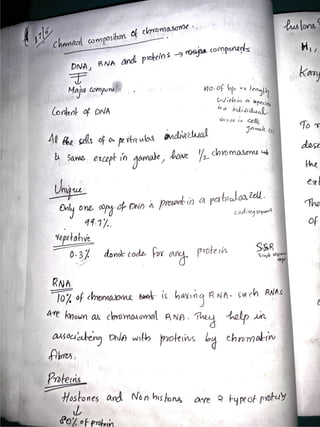 17/5
Chemical composition of chromosome.
DNA, RNA and proteins → major components
Major compon
no. of bp or length
within a species
Content of DNA
individual
cells
gamate
All the cells of a perticular individual
is same except in gamate, have 1/2 chromosome
Unique
Only one copy of DNA is present in a particular cell.
99.7%.
coding sequence
repetative
0.3% donot code for any protein
SSR
RNA
10% of chromosome is having RNA. such RNAs
are known as chromosomal RNA. They help in
associating DNA with proteins by chromatin
fibres.
Proteins
Hostones and Non histons are 2 type of protein
80% of protein
histone
H1,
Kary
To
dose
the
ext
The
of